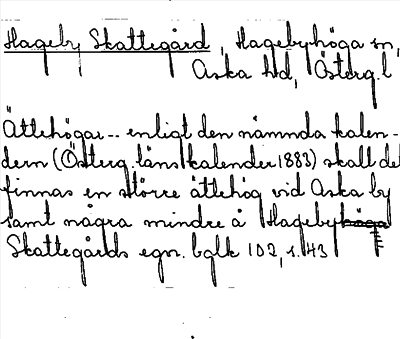 Hageby Skattegård, Hagebyhöga sn,
Aska hd, Österg.l
Ättehögar -- enligt den nämnda kalen-
dern (Österg. läns kalender 1883) skall det
finnas en större ättehög vid Aska by
samt några mindre å Hageby
Skattegårds egor. bglk 102, s. 43